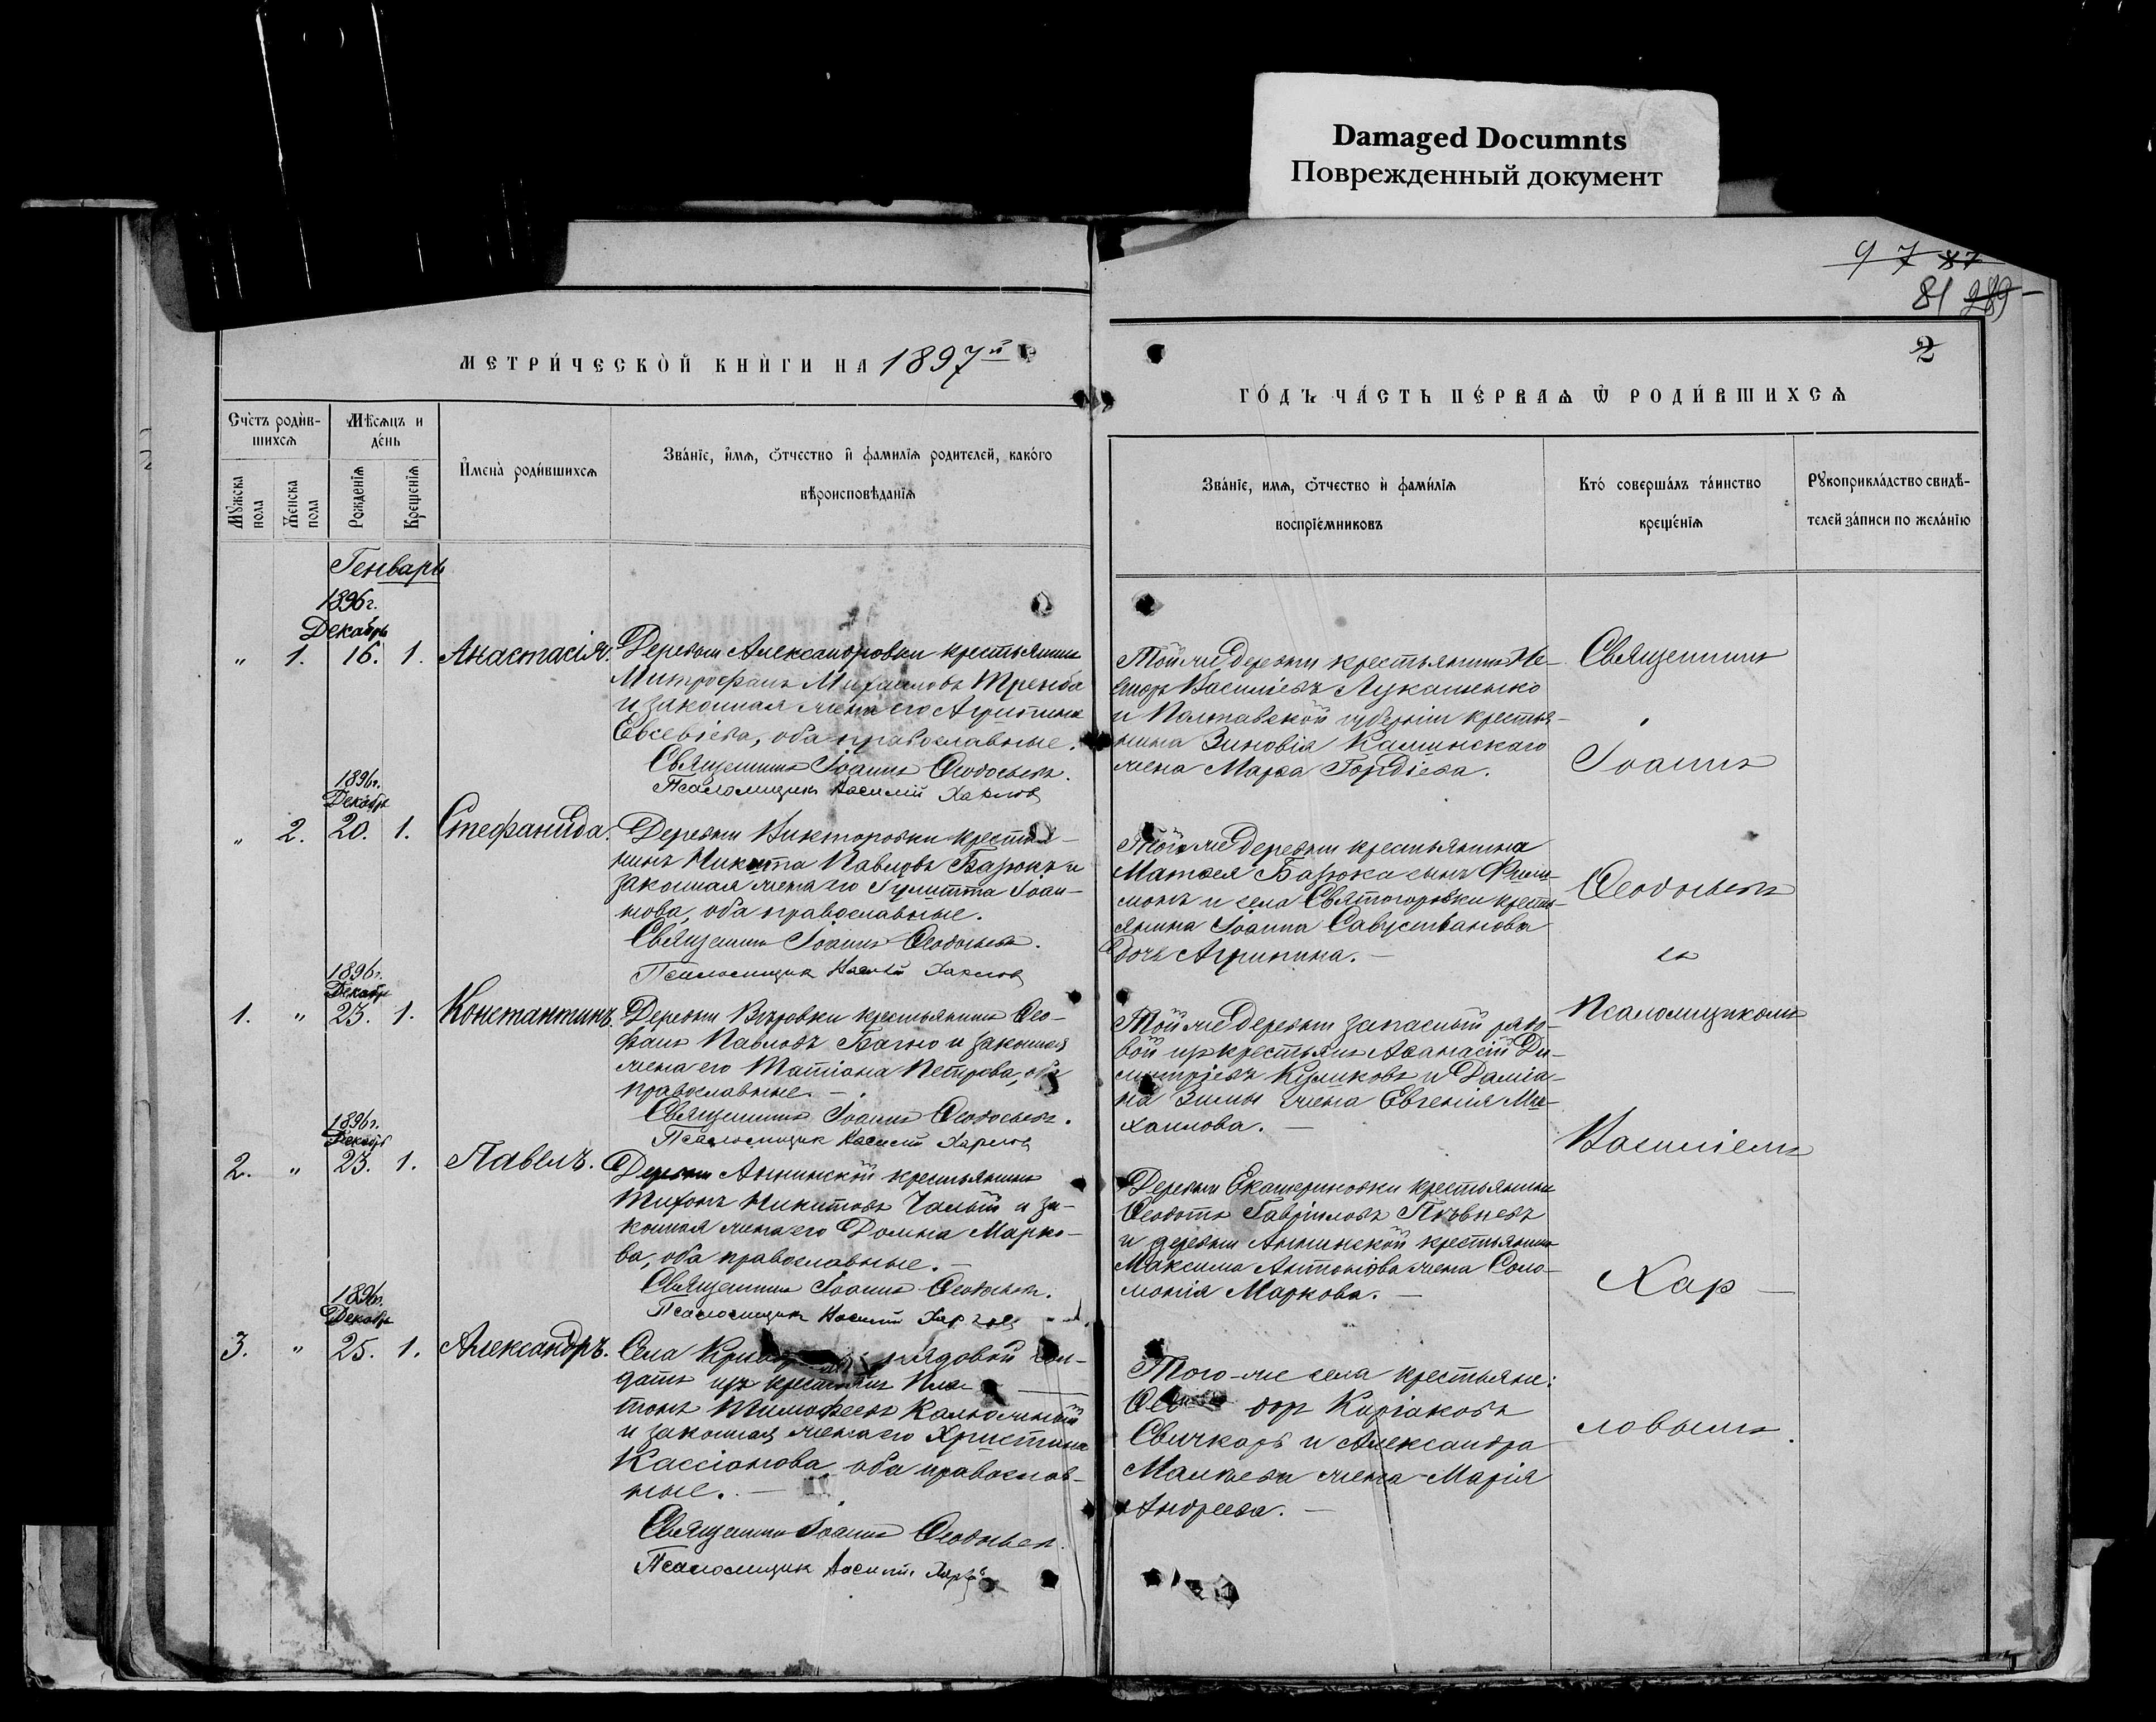 Damaged Documnts
Поврежденный документ
9 7 87
81 289
2
МЕТРИ́ЧЕСКО̀Й КНЍГИ НА 1897й
ГО́ДЪ ЧА́СТЬ ПЕ́РВАѦ Ѽ РОДИ́ВШИХСѦ
Сче́тъ роди́в-
шихсѧ
Мѣ́сѧцъ и
де́нь
Мꙋ́жска
пола
Же́нска
пола
Рожде́нїѧ
Креще́нїѧ
И҆мена̀ роди́вшихсѧ
Зва́нїе, и҆́мѧ, ѻ҆́тчество и҆ фами́лїѧ роди́телей, како́го
вѣроисповѣ́данїѧ
Зва́нїе, и́мѧ, ѻ҆́тчество ѝ фами́лїѧ
воспрїе́мниковъ
Кто́ соверша́лъ та́инство
креще́нїѧ
Рꙋкоприкла́дство свидѣ́-
телей за́писи по жела́нїю
Генварь
1896 г.
Декабрь
„ 1. 16. 1. Анастасія.
Деревни Александровки крестьянинъ
Митрофанъ Михаиловъ Тренба
и законная жена его Агрипина
Евсевіева, оба православные.
Священникъ Іоаннъ Ѳеодосьевъ.
Псаломщикъ Василій Харлов
Той же деревни крестьянинъ Не-
сторъ Васильевъ Лукашенко
и Полтавской губерніи крестья-
нина Зиновія Калинскаго
жена Марѳа Гордіева.
1896 г.
Декабрь
„ 2. 20. 1. Стефанида.
Деревни Викторовки крестья-
нинъ Никита Павловъ Базюкъ и
законная жена его Іулитта Іоан-
нова, оба православные.
Священникъ Іоаннъ Ѳеодосьевъ.
Псаломщикъ Василій Харлов
Той же деревни крестьянина
Матѳея Базюка сынъ Фили-
монъ и села Святогоровки кресть-
янина Іоанна
дочь Агрипина.
1896 г.
Декабрь
1. „ 23. 1. Константинъ.
Деревни Вѣровки крестьянинъ Ѳео-
фанъ Павловъ Багно и законная
жена его Татіана Петрова, оба
православные.
Священникъ Іоаннъ Ѳеодосьевъ.
Псаломщикъ Василій Харлов
Той же деревни запасный рядо-
вой изъ крестьянъ Аѳанасій Ди-
митріевъ Куликовъ и Даміа-
на Зимы жена Евгенія Ми-
хаилова.
1896 г.
Декабрь
2. „ 23. 1. Павелъ.
Деревни Аннинской крестьянинъ
Тихонъ Никитовъ Чалый и за-
конная жена его Домна Марко-
ва, оба православные.
Священникъ Іоаннъ Ѳеодосьевъ.
Псаломщикъ Василій Харлов
Деревни Екатериновки крестьянинъ
Ѳеодотъ Гавріиловъ Пѣвневъ
и деревни Аннинской крестьянина
Максима Антонова жена Соло-
монія Маркова.
1896 г.
Декабрь
3. „ 25. 1. Александръ.
Села рядовой сол-
датъ изъ крестьянъ Пла-
тонъ Тимоѳеевъ
и законная жена его Христина
Кассіанова, оба православ-
ные.
Священникъ Іоаннъ Ѳеодосьев.
Псаломщикъ Василій
Того-же села крестьяне:
доръ Киріаковъ
Свичкарь и Александра
жена Марія
Андреева.
Священникъ
Іоаннъ
Ѳеодосьевъ
съ
Псаломщикомъ
Василіемъ
Хар-
ловымъ.